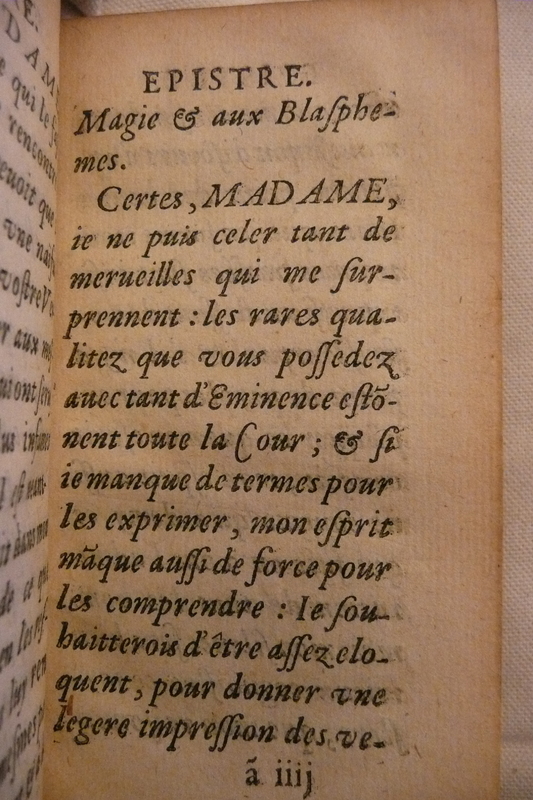 EPISTRE.
Magie & aux Blaſphe-
mes.
Certes, MADAME,
ie ne puis celer tant de
merueilles qui me ſur-
prennent : les rares qua-
litez que vous poſſedez
auec tant d'Eminence eſtõ-
nent toute la Cour ; & ſi
ie manque de termes pour
les exprimer, mon eſprit
mãque auſſi de force pour
les comprendre : Ie ſou-
haitterois d'être aſſez elo-
quent, pour donner vne
legere impreſſion des ve-
ã iiij